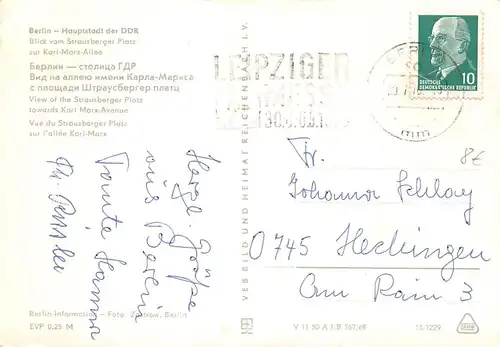 Berlin – Hauptstadt der DDR
Blick vom Strausberger Platz
zur Karl-Marx-Allee
Берлин — столица ГДР
Вид на аллею имени Карла-Маркса
с площади Штраусбергер платц
View of the Strausberger Platz
towards Karl Marx-Avenue
Vue du Strausberger Platz
sur l'allée Karl-Marx
Herzl. Grüße
aus Berlin
Tante Hanna
VEB BILD UND HEIMAT REICHENBACH I. V.
LEIPZIGER
MESSE
10
DEUTSCHE
DEMOKRATISCHE REPUBLIK
8€
Fr.
Johanna Schlay
0745 Hechingen
Am Rain 3
Berlin-Information – Foto: Zastrow, Berlin
EVP 0,25 M
V 11 50 A 1/B 767/69
15/1229